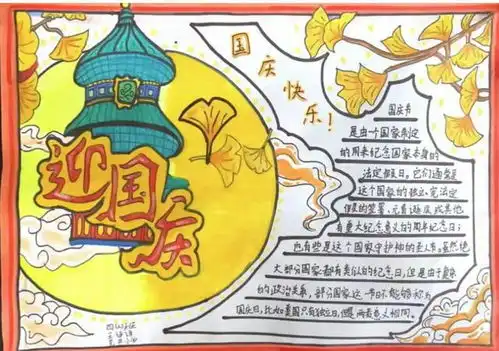 国庆快乐！
迎国庆
国庆节
是由一个国家制定
的用来纪念国家本身的
法定假日，它们通常是
这个国家的独立、宪法定
的签署、元首诞辰或其他
有重大纪念意义的周年纪念日；
也有些是这个国家守护神的圣人节。虽然绝
大部分国家都有类似的纪念日，但是由于
的政治关系，部分国家这一节日不能够称为
国庆日，比如美国只有独立日，但两者意义相同。